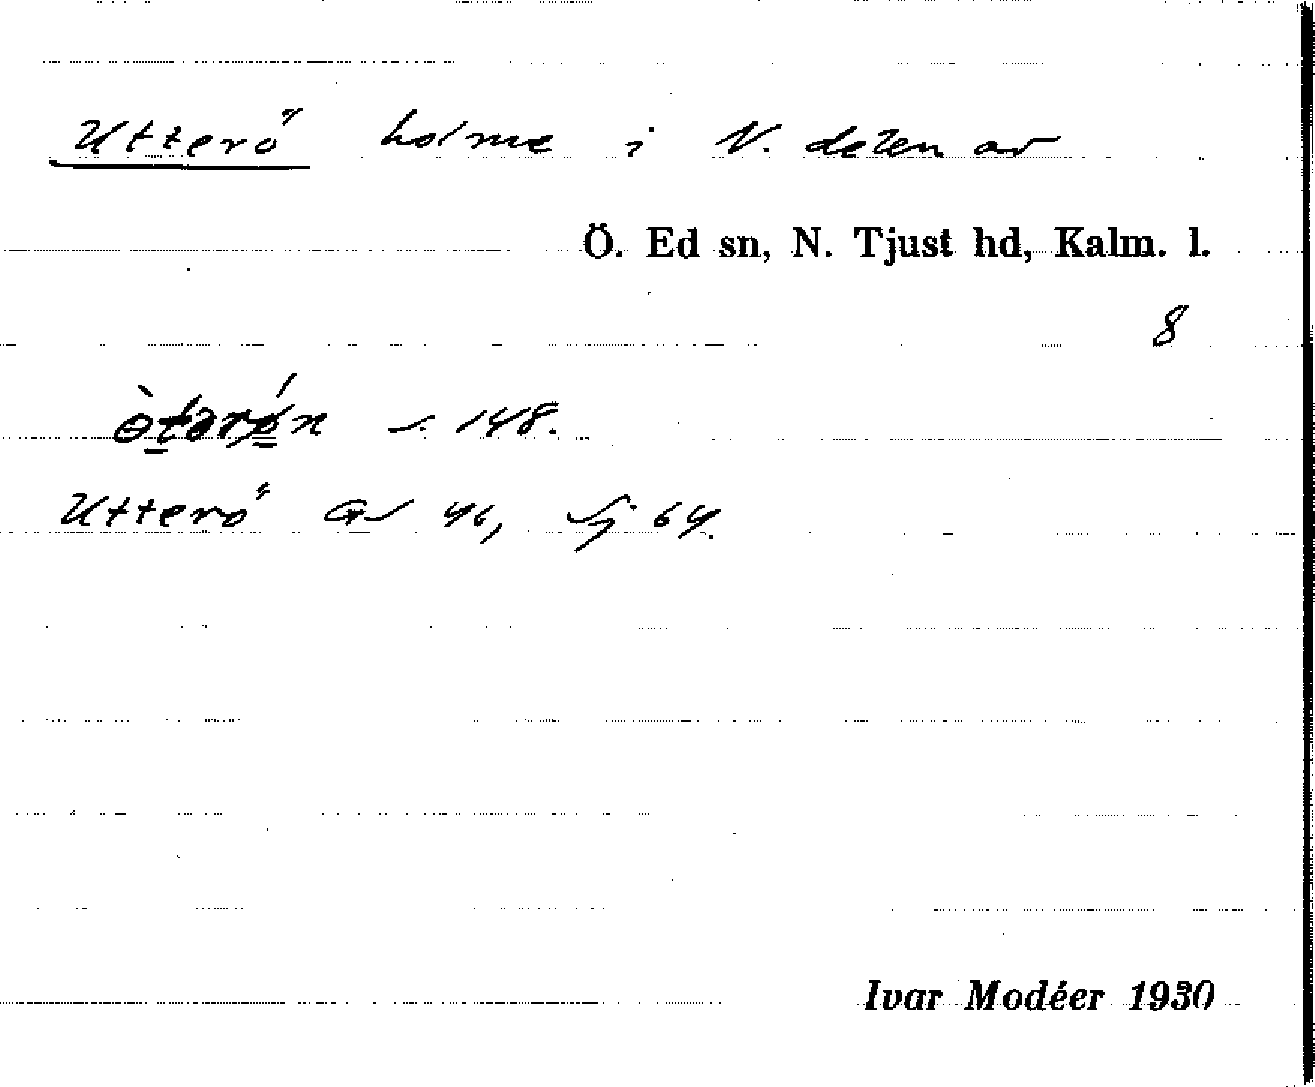 Utterö holme i N. delen av
Ö. Ed sn, N. Tjust hd, Kalm. l.
8
s. 148.
Utterö Gs 46, Sj 64.
Ivar Modéer 1930